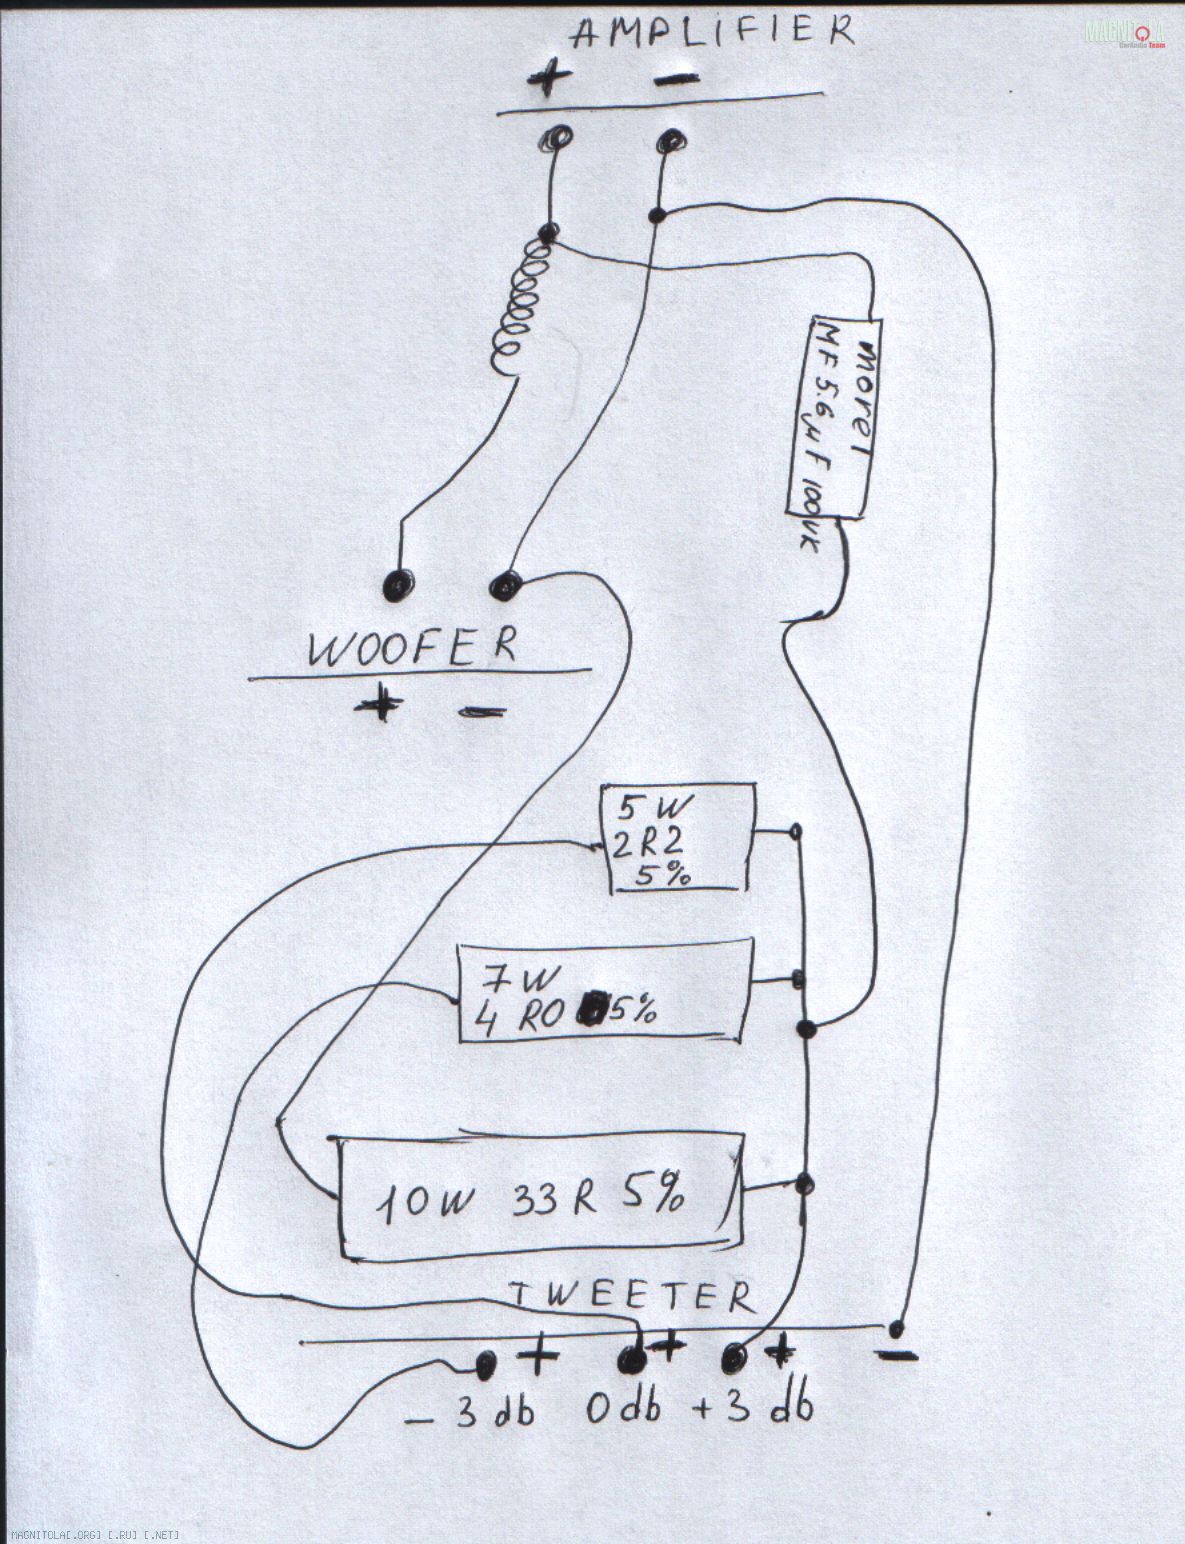 AMPLIFIER
+ -
MAGNITOLA
CarAudio Team
morel
MF 5.6 µF 100VK
WOOFER
+ -
5 W
2R2
5%
7 W
4 R0 5%
10W 33R 5%
TWEETER
+ + + -
- 3 db 0 db + 3 db
MAGNITOLA[.ORG] [.RU] [.NET]